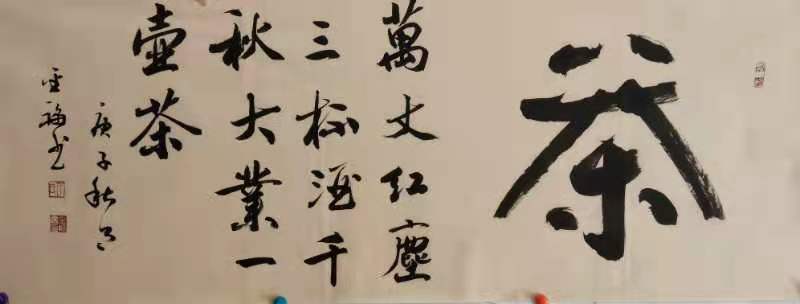 茶
萬丈红塵
三杯酒千
秋大業一
壶茶
庚子秋月
福书